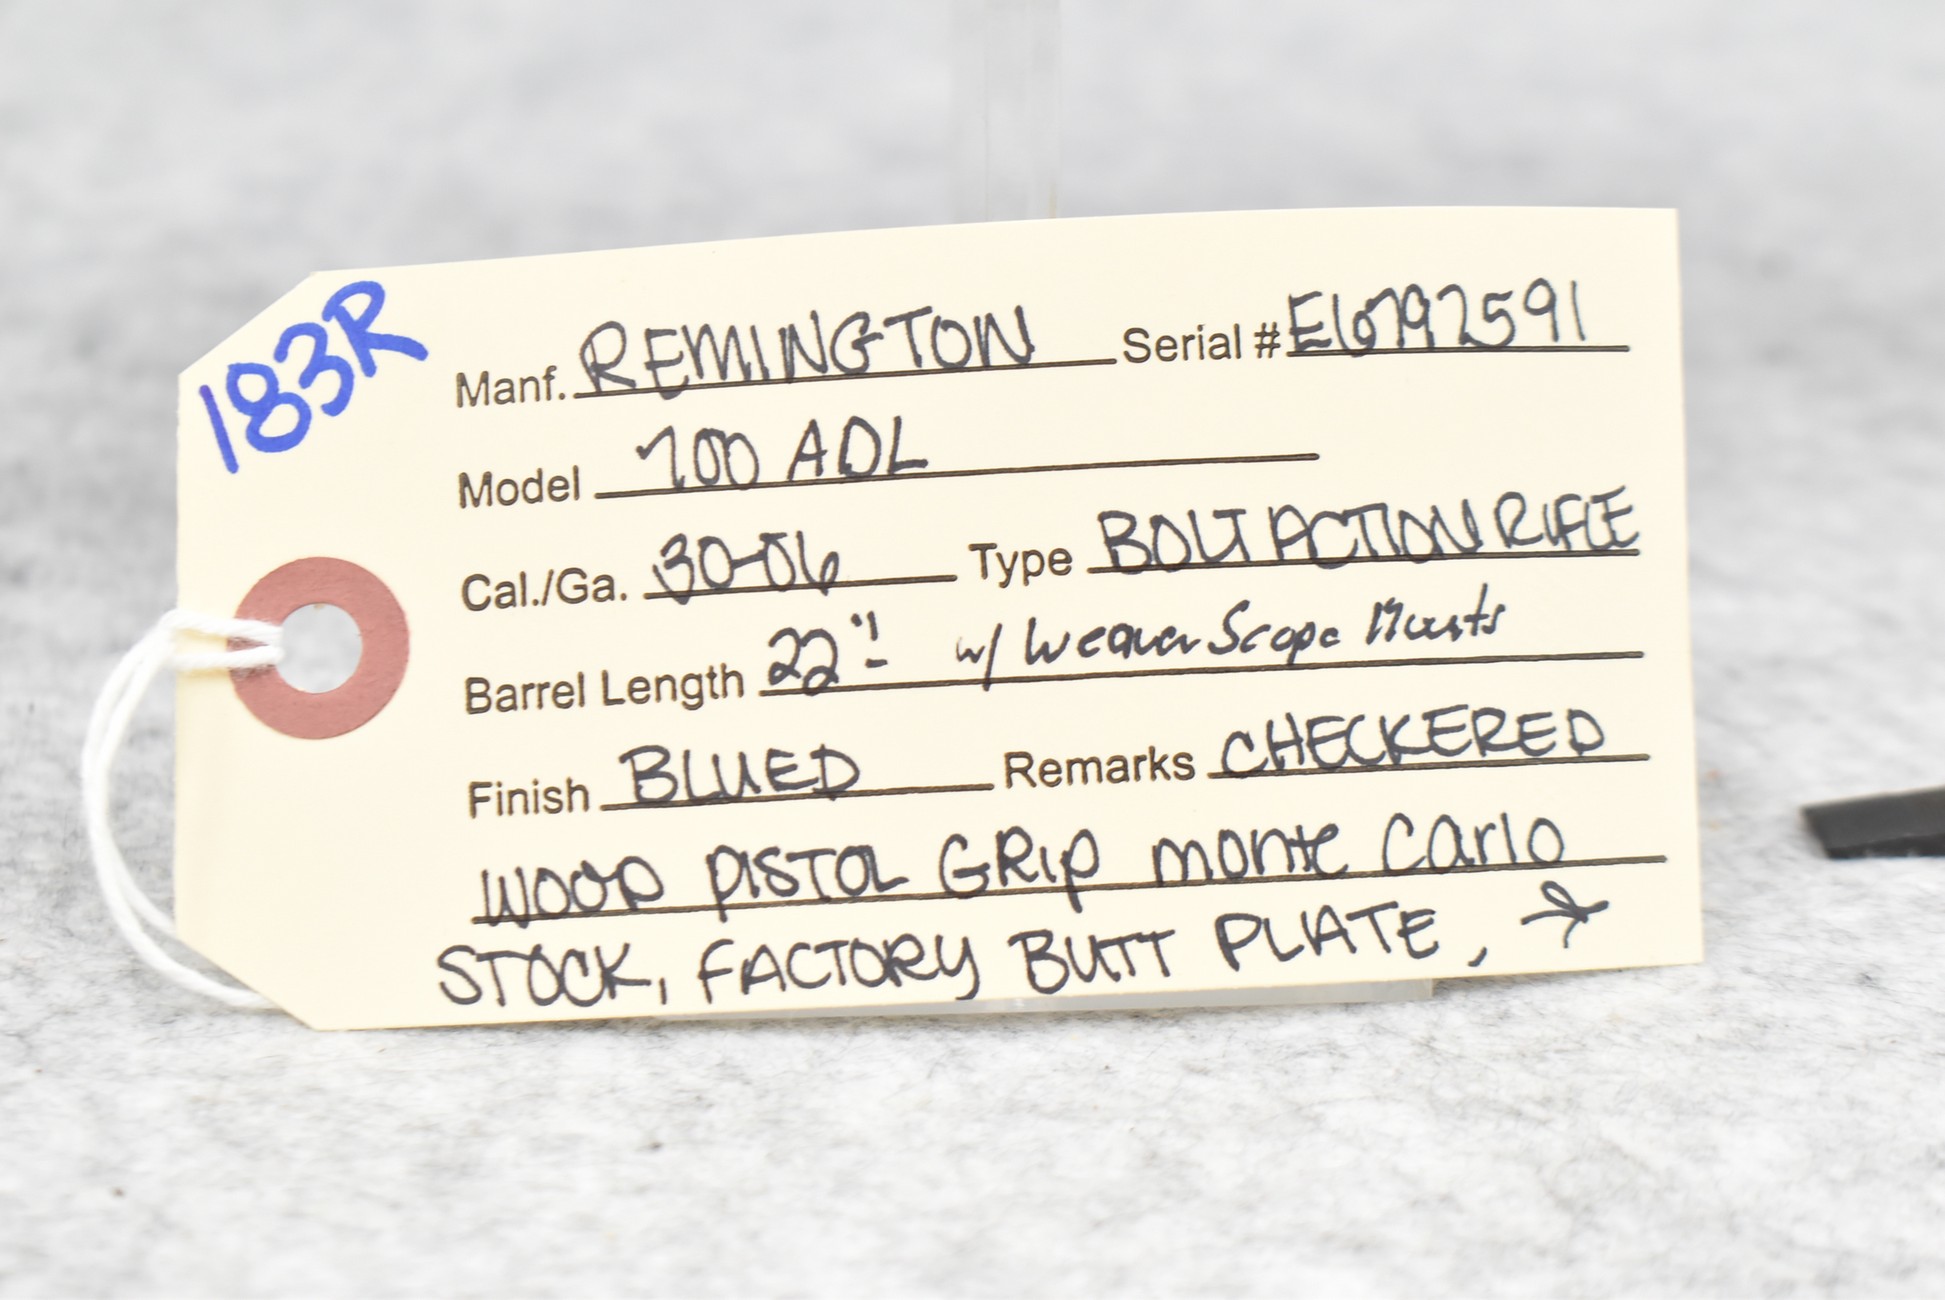 183R
Manf. REMINGTON Serial # E6792591
Model 700 ADL
Cal./Ga. 30-06 Type BOLT ACTION RIFLE
Barrel Length 22" w/ Weaver Scope Mounts
Finish BLUED Remarks CHECKERED
WOOD PISTOL GRIP monte carlo
STOCK, FACTORY BUTT PLATE, →